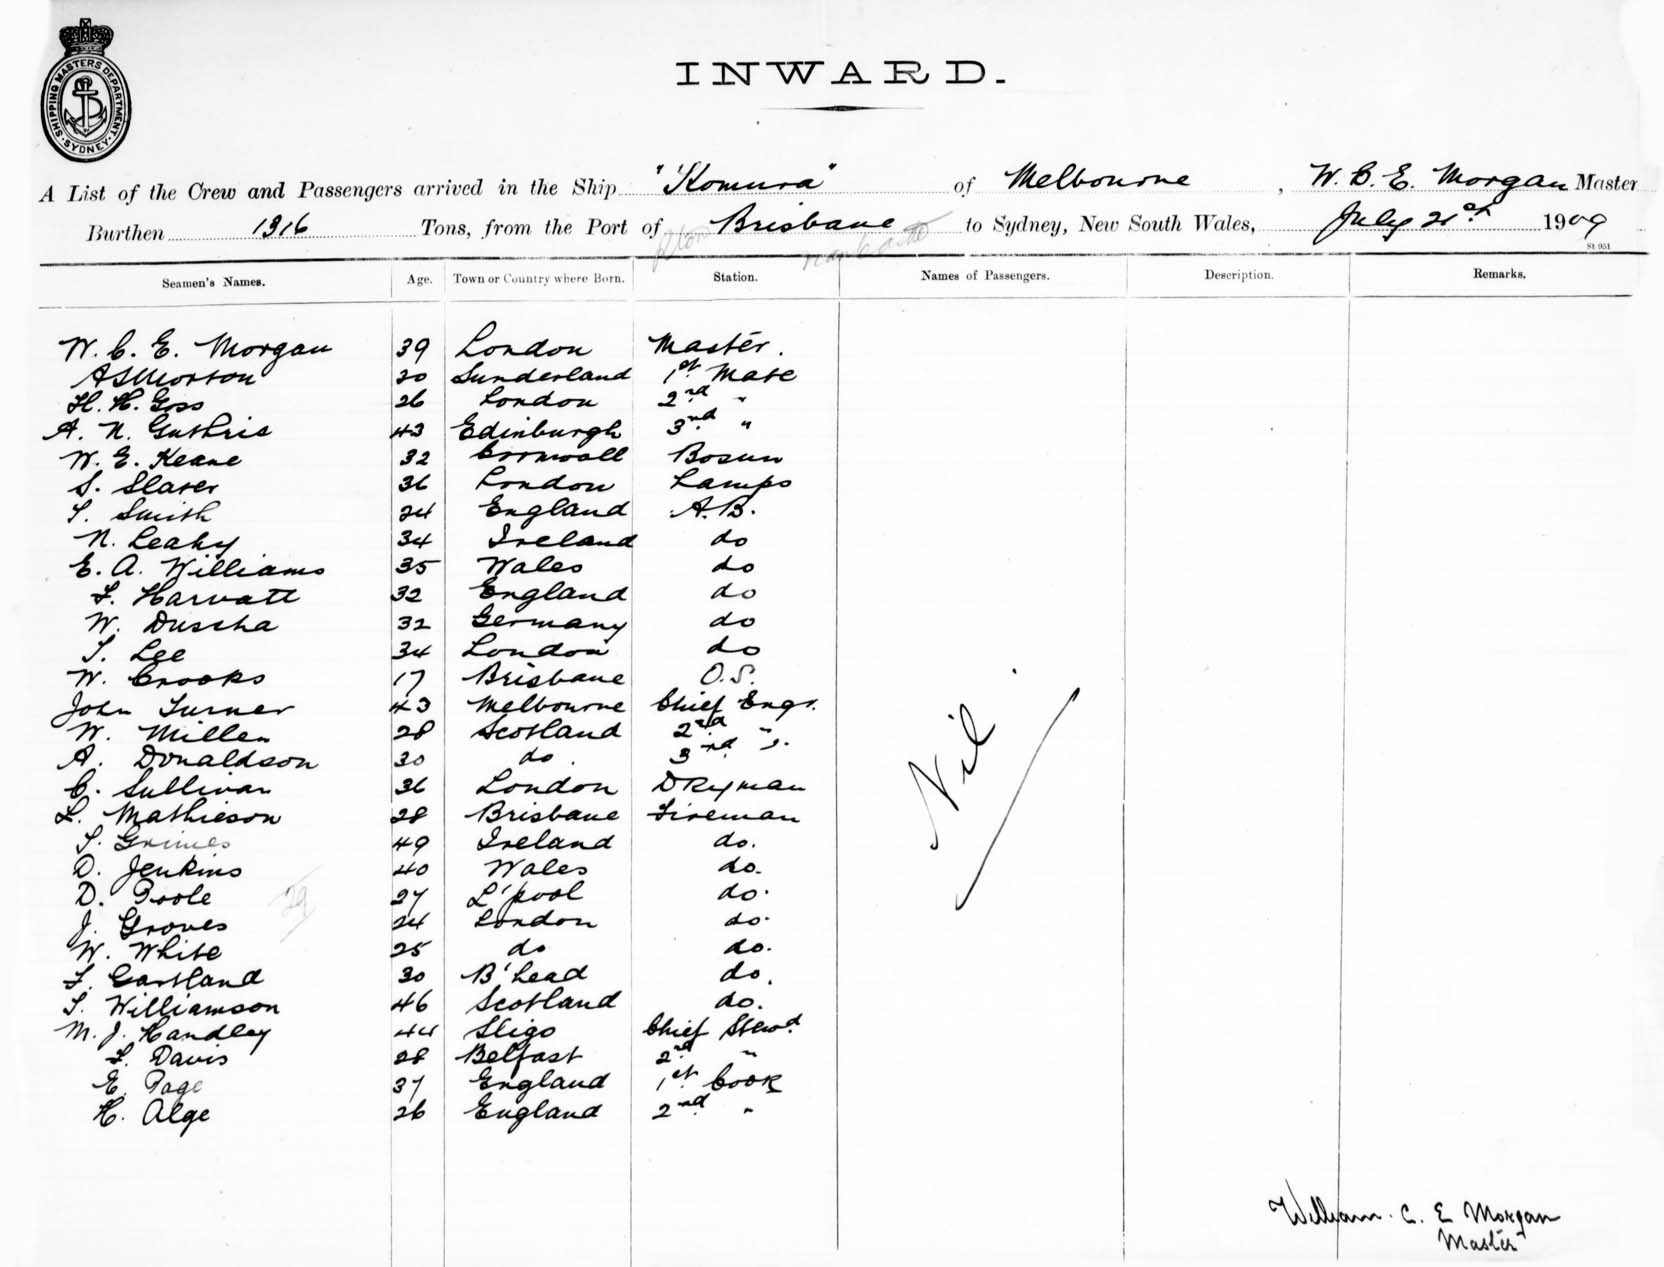 SHIPPING MASTERS DEPARTMENT
SYDNEY
INWARD.
A List of the Crew and Passengers arrived in the Ship "Komura" of Melbourne, W. C. E. Morgan Master
Burthen 1316 Tons, from the Port of Brisbane to Sydney, New South Wales, July 21st 1909
St 951
Seamen's Names. Age. Town or Country where Born. Station. Names of Passengers. Description. Remarks.
W. C. E. Morgan 39 London Master.
A S Morton 30 Sunderland 1st Mate
H. H. Goss 26 London 2nd "
A. N. Guthrie 43 Edinburgh 3rd "
W. E. Keane 32 Cornwall Bosun
S. Slater 36 London Lamps
T. Smith 24 England A.B.
N. Leahy 34 Ireland do
E. A. Williams 35 Wales do
F. Harvatt 32 England do
W. Duscha 32 Germany do
T. Lee 34 London do
W. Crooks 17 Brisbane O.S.
John Turner 43 Melbourne Chief Engr.
W. Miller 28 Scotland 2nd "
A. Donaldson 30 do. 3rd ".
C. Sullivan 36 London DKyman
L. Mathieson 28 Brisbane Fireman
T. Grimes 49 Ireland do.
D. Jenkins 40 Wales do.
D. Poole 27 L'pool do.
J. Groves 24 London do.
W. White 25 do do.
F. Gartland 30 B'head do.
T. Williamson 46 Scotland do.
M. J. Handley 44 Sligo Chief Stewd.
F. Davis 28 Belfast 2nd "
E. Page 37 England 1st Cook
H. Alge 26 England 2nd "
Nil
29
William. C. E Morgan
Master